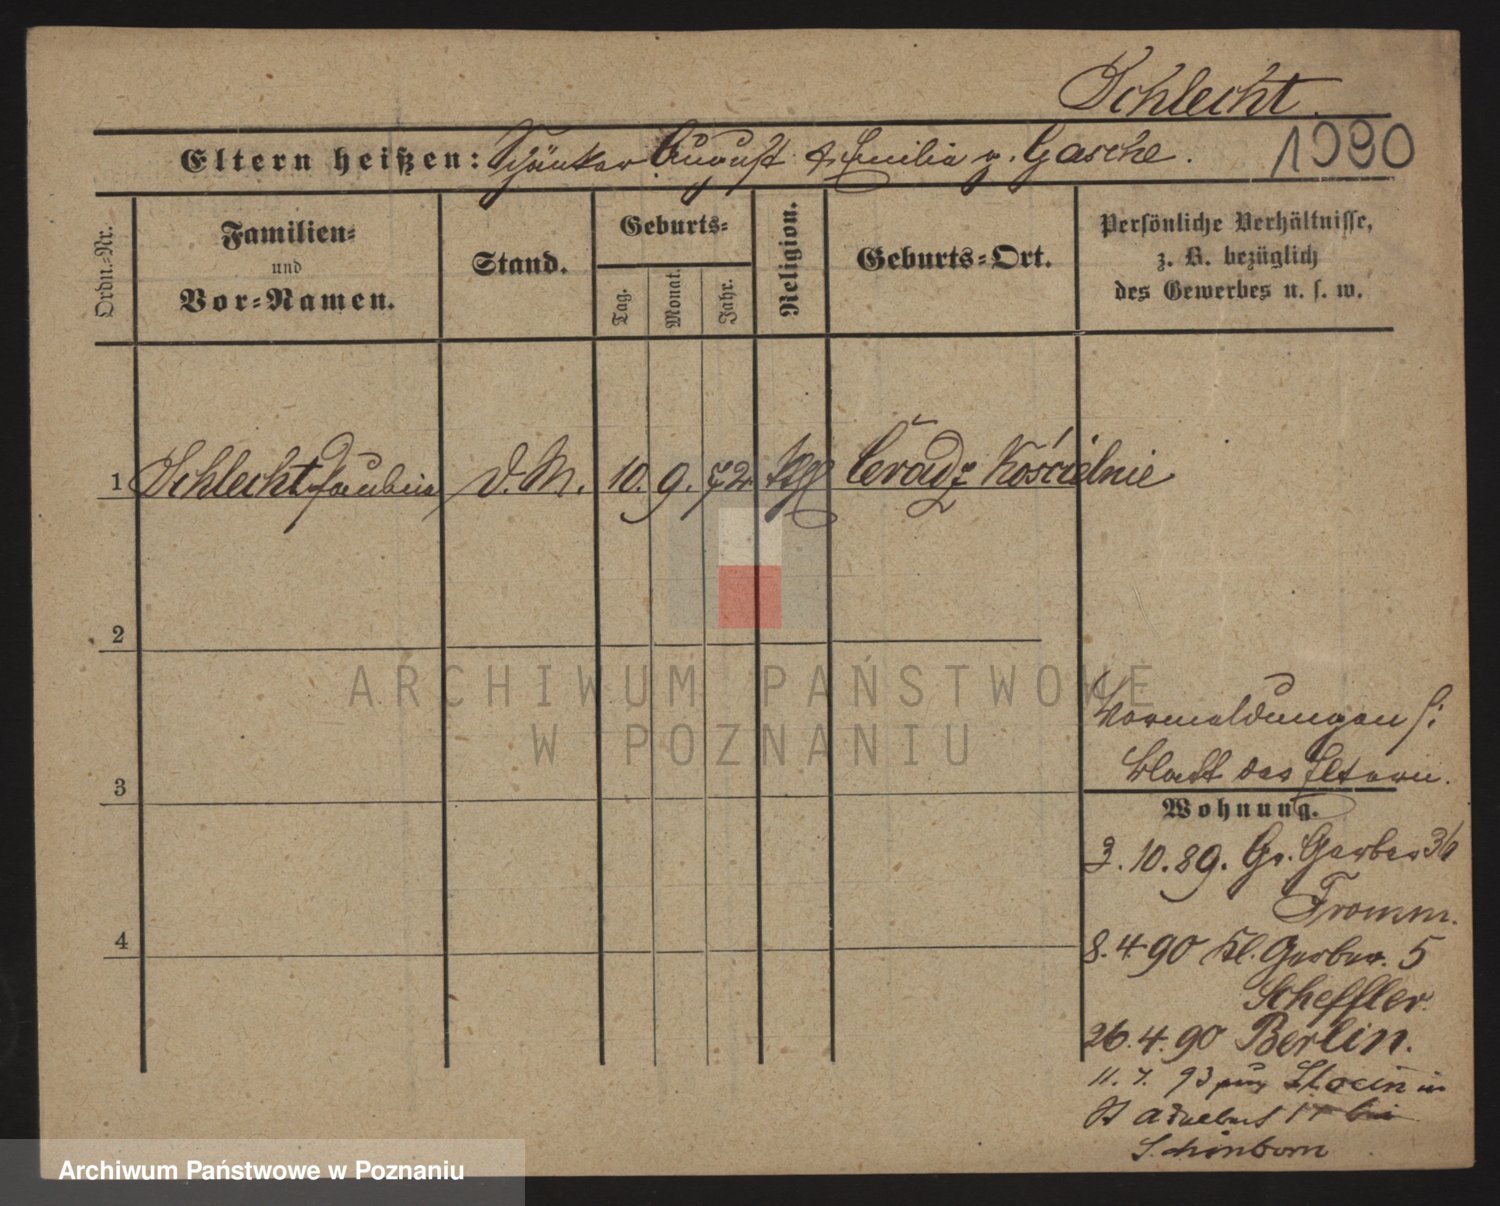 Schlecht.
Eltern heißen: Schänker August & Emilia g. Gasche.
1990
Ordn.=Nr.
Familien=
und
Vor=Namen.
Stand.
Geburts=
Tag.
Monat.
Jahr.
Religion.
Geburts=Ort.
Persönliche Verhältnisse,
z. B. bezüglich
des Gewerbes u. s. w.
1 Schlecht Paulina d. M. 10. 9. 72 Czradz Kościelnie
2
ARCHIWUM PAŃSTWOWE
W POZNANIU
Vormeldungen s:
Blatt des Eltern.
3
Wohnung.
3. 10. 89. Gr. Gerber 36
Fromm.
4
8. 4. 90 Kl. Gerber. 5
Scheffler.
26. 4. 90 Berlin.
11. 7. 93 in
St Adalbert
Schönborn
Archiwum Państwowe w Poznaniu